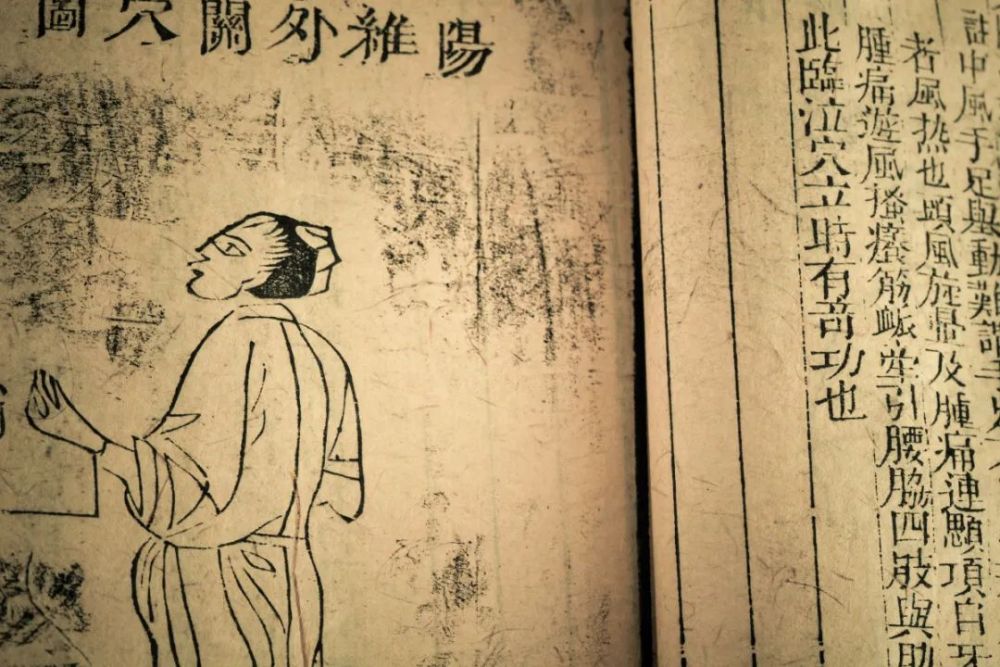 中風手足與動難
者風热也頭風旋暈及腫痛連顋項自牙
腫痛遊風搔癢筋牽引腰脇四肢與肋
此臨泣穴立時有奇功也
陽維外關穴圖